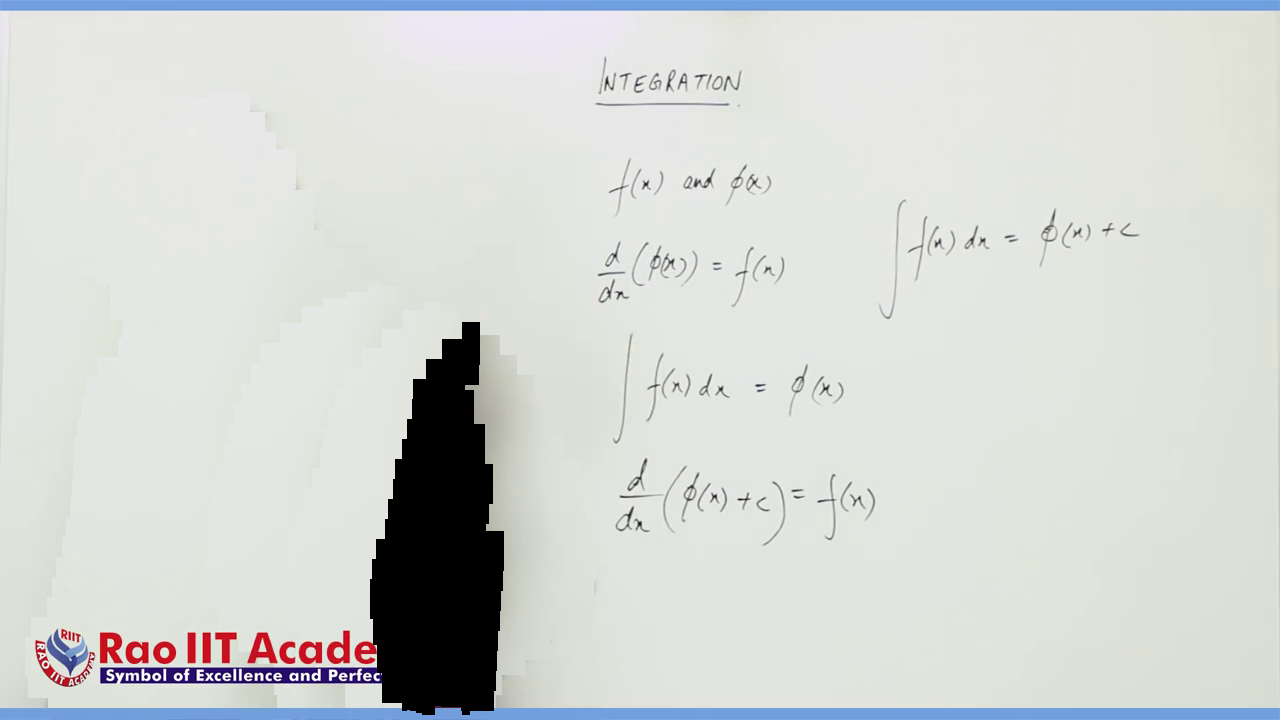 INTEGRATION
f(x) and ϕ(x)
d/dx (ϕ(x)) = f(x)
∫ f(x) dx = ϕ(x) + c
∫ f(x) dx = ϕ(x)
d/dx (ϕ(x) + c) = f(x)
RIIT
RAO IIT ACADEMY
Rao IIT Acade
Symbol of Excellence and Perfec